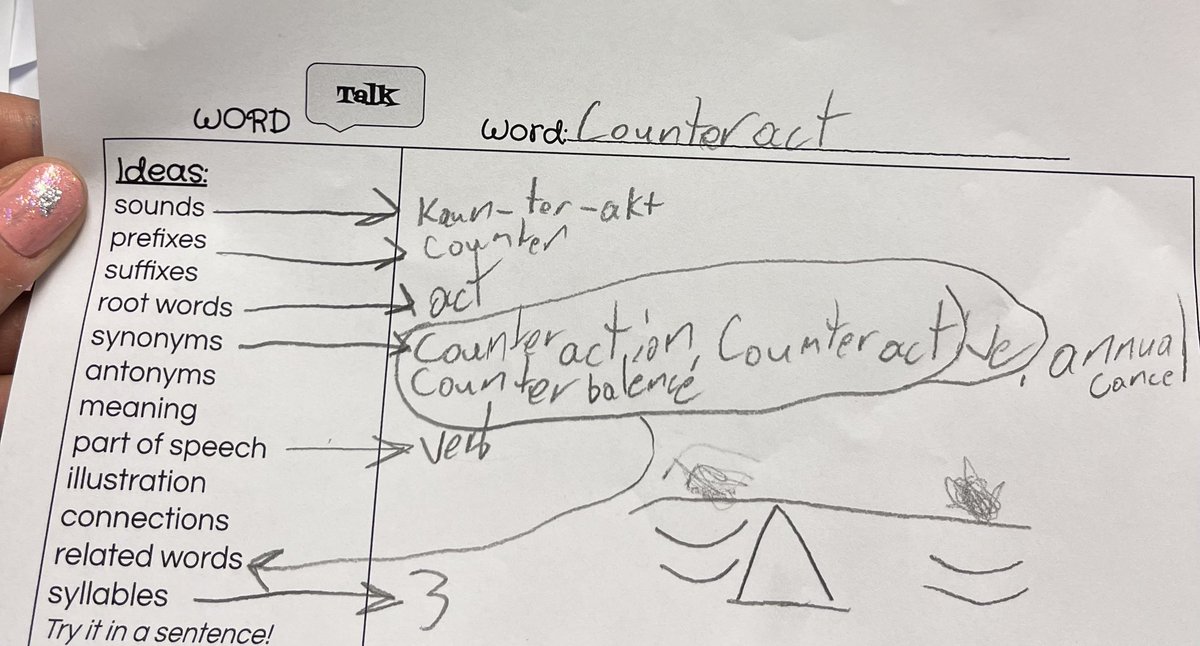 WORD Talk word: Counteract
Ideas:
sounds Kaun-ter-akt
prefixes counter
suffixes
root words act
synonyms Counteraction, Counteractive, annual
antonyms Counterbalence cancel
meaning
part of speech verb
illustration
connections
related words
syllables 3
Try it in a sentence!